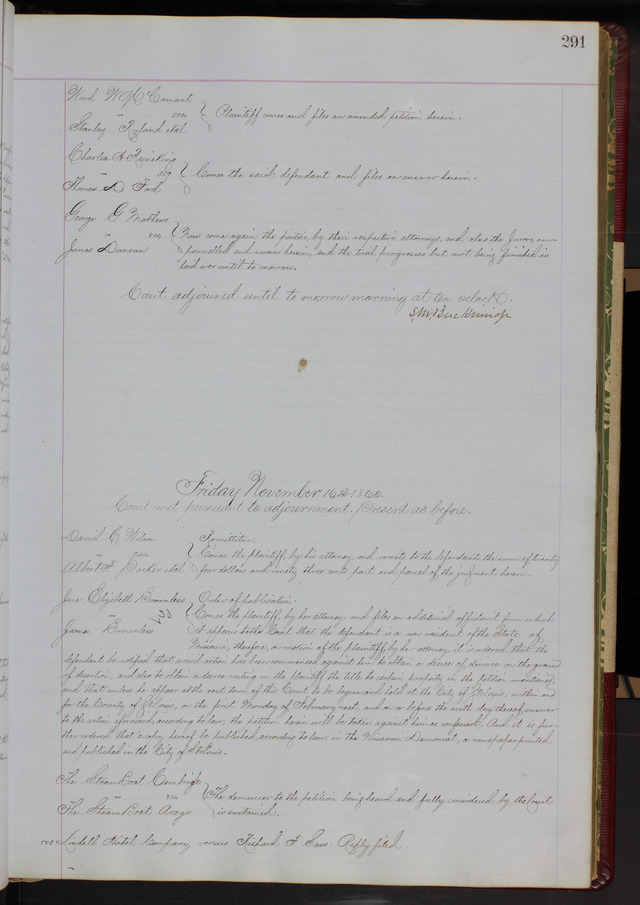 291
Wood W. McCamant
vs
Stanley Ryland et al
Plaintiff comes and files an amended petition herein.
Charles A
vs
Thomas D Ford
Comes the said defendant and files an answer herein.
George G Mathews
vs
James Duncan
Now come again the parties, by their respective attorneys, and also the Jurors em-
pannelled and sworn herein, and the trial progresses but not being finished is
laid over until to morrow.
Court adjourned until to morrow morning at ten oclock.
S. M. Breckinridge
Friday November 16th 1860.
Court met pursuant to adjournment. Present as before.
David C Wilson
vs
Albert F et al
Remittitur.
Comes the plaintiff, by his attorney, and remits to the defendants the sum of twenty
four dollars and ninety three cents part and parcel of the judgment herein.
Jane Elizabeth Brownless
vs
James Brownless
Order of publication.
Comes the plaintiff, by her attorney, and files an additional affidavit from which
it appears to the Court that the defendant is a non resident of the State of
Missouri, therefore, on motion of the plaintiff by her attorney, it is ordered that the
defendant be notified that said action has been commenced against him to obtain a decree of divorce on the ground
of desertion, and also to obtain a decree vesting in the plaintiff the title to certain property in the petition mentioned,
and that unless he appear at the next term of this Court to be begun and held at the City of St Louis, within and
for the County of St Louis, on the first Monday of February next, and on or before the sixth day thereof answer
to the action aforesaid, according to law, the petition herein will be taken against him as confessed. And it is fur-
ther ordered that a copy hereof be published, according to law, in the Missouri Democrat, a newspaper printed
and published in the City of St Louis.
The Steam Boat Cambridge
vs
The Steam Boat Arago
The demurrer to the petition being heard and fully considered by the Court
is sustained.
Lindell Hotel Company, versus Richard F Sass: Reply filed.